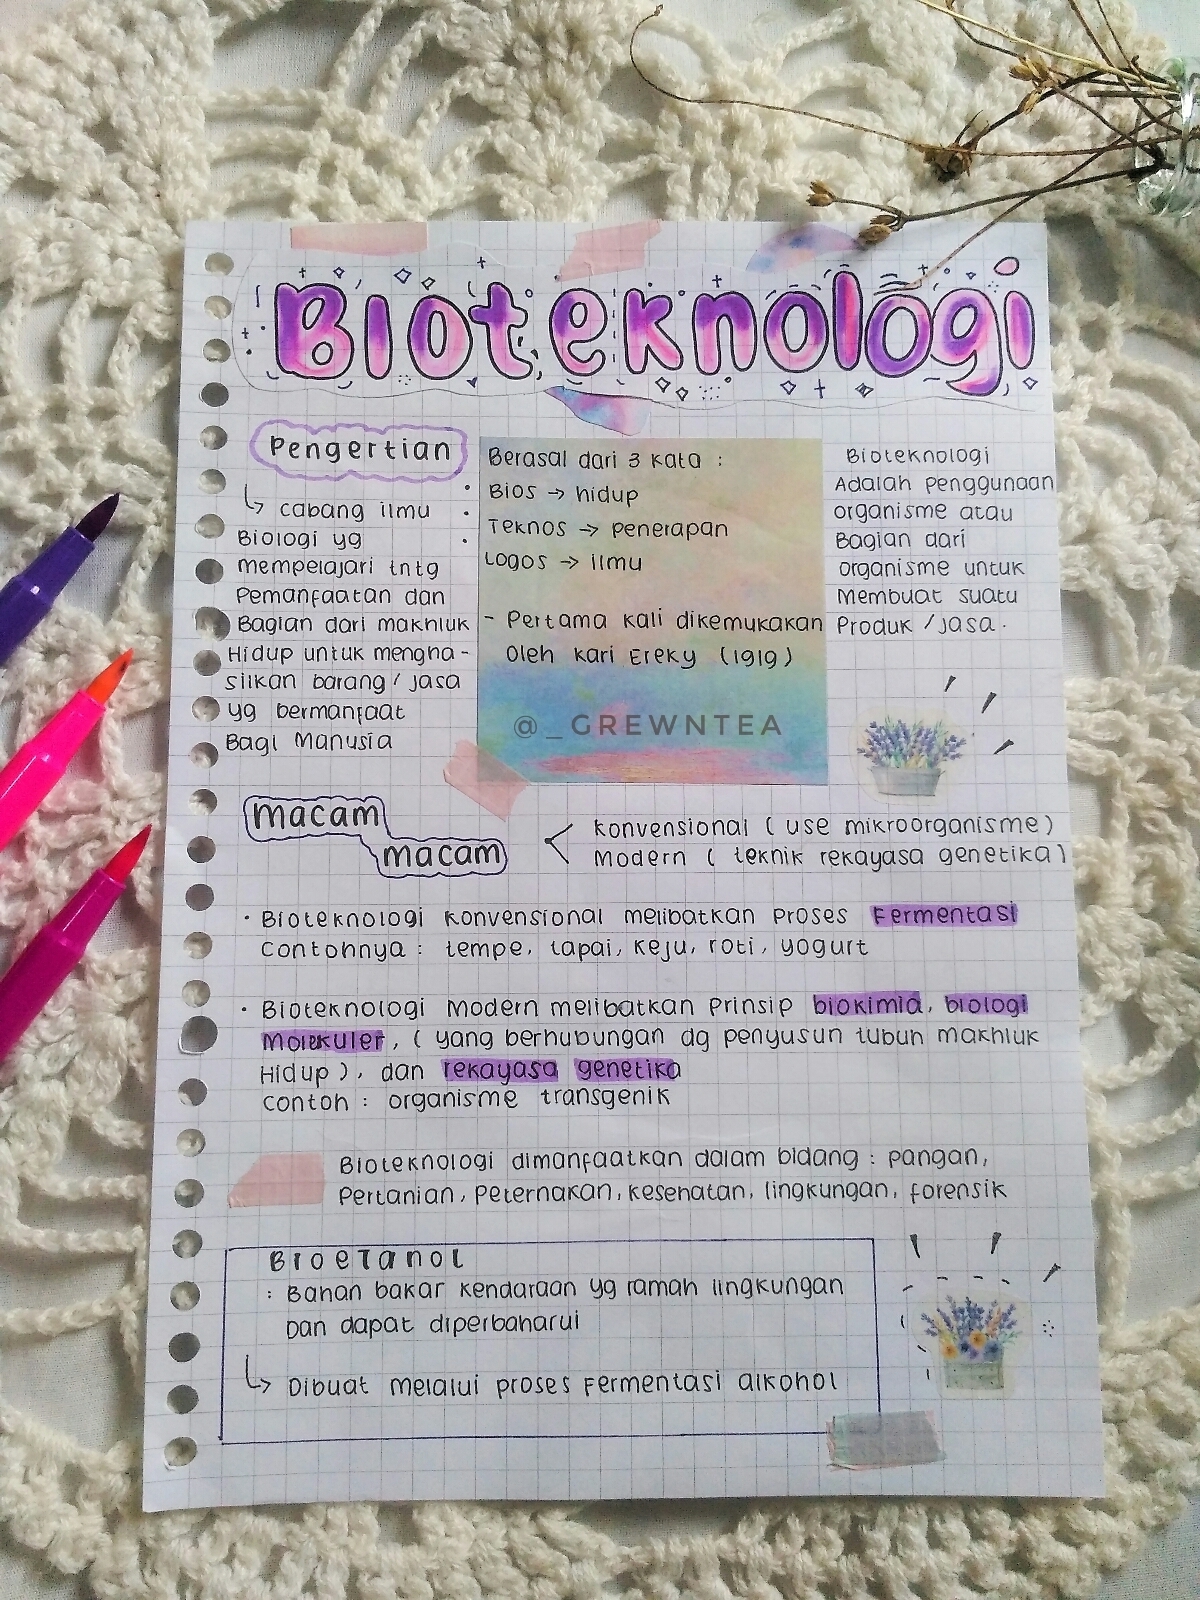 Bioteknologi
Pengertian
↳ cabang ilmu
Biologi yg
mempelajari tntg
Pemanfaatan dan
Bagian dari makhluk
Hidup untuk mengha-
silkan barang / jasa
yg bermanfaat
Bagi Manusia
Berasal dari 3 kata :
• Bios → hidup
• Teknos → penerapan
• Logos → ilmu
- Pertama kali dikemukakan
Oleh kari Ereky (1919)
@_GREWNTEA
Bioteknologi
Adalah penggunaan
organisme atau
Bagian dari
organisme untuk
Membuat suatu
Produk / jasa.
macam
macam
< konvensional ( use mikroorganisme )
Modern ( teknik rekayasa genetika )
• Bioteknologi konvensional melibatkan proses Fermentasi
Contohnya : tempe, tapai, keju, roti, yogurt
• Bioteknologi Modern melibatkan Prinsip biokimia, biologi
Molekuler, ( yang berhubungan dg penyusun tubuh makhluk
Hidup ), dan rekayasa genetika
Contoh : organisme transgenik
Bioteknologi dimanfaatkan dalam bidang : pangan,
Pertanian, Peternakan, kesehatan, lingkungan, forensik
Bioetanol
: Bahan bakar kendaraan yg ramah lingkungan
Dan dapat diperbaharui
↳ Dibuat melalui proses Fermentasi alkohol